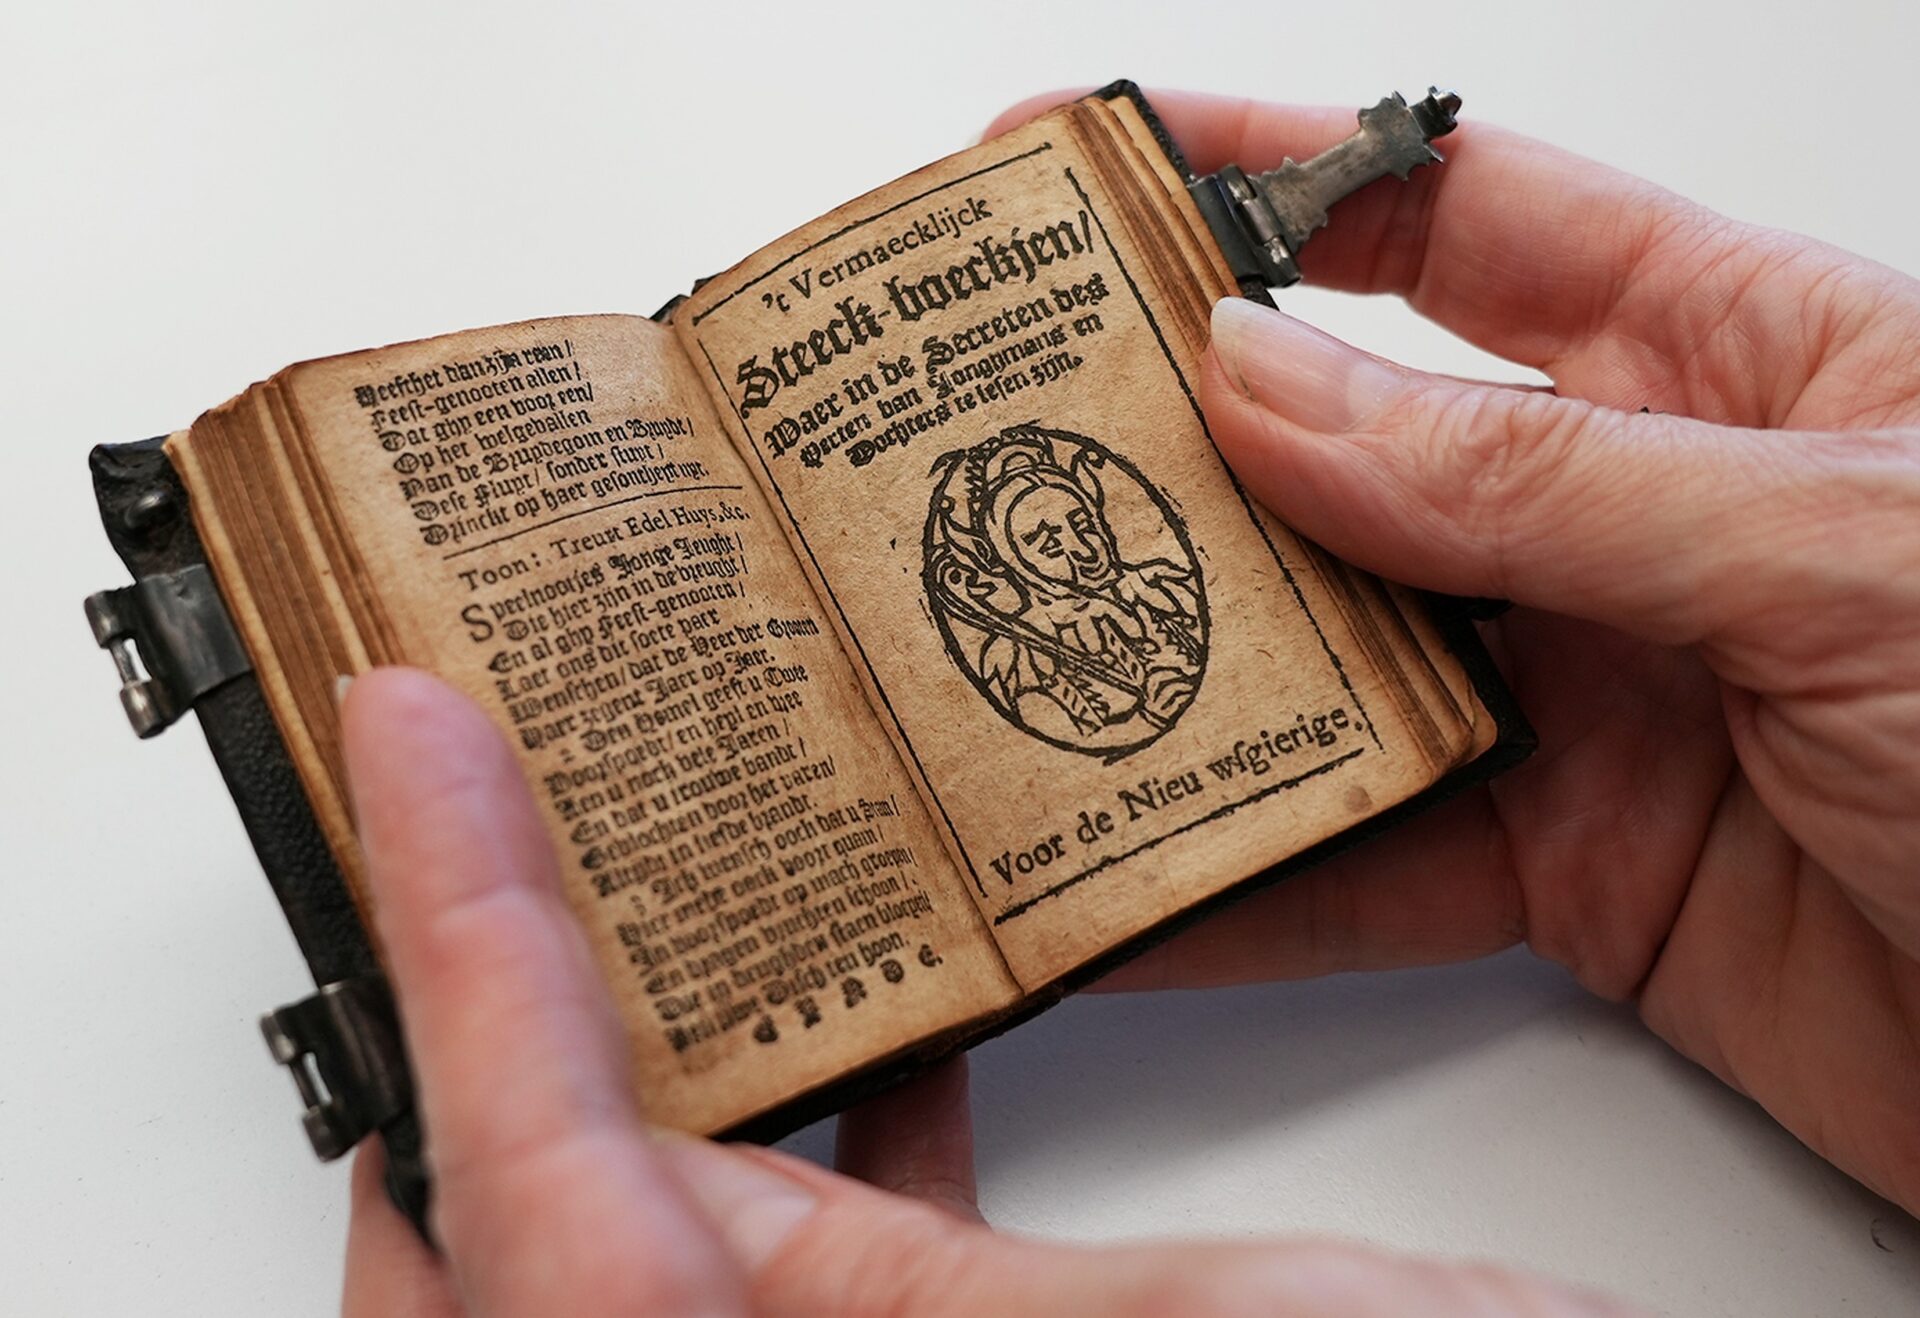 Heeft het van zijn reen/
Feest-genooten allen/
Dat ghy een voor een/
Op het welgevallen
Van de Bruydegom en Bruydt/
Dese Fluyt/ sonder stuyt/
Drinckt op haer gesontheyt uyt.
Toon: Treurt Edel Huys, &c.
Speelnootjes Jonge Jeught/
Die hier zijn in de vreught/
En al ghy Feest-genooten/
Laet ons dit soete paer
Wenschen/ dat de Heer der Grooten
Haer zegent Jaer op Jaer.
2 Den Hemel geeft u Twee
Voorspoedt/ en heyl en vree
Aen u noch vele Jaren/
En dat u trouwe bandt/
Gevlochten door het paren/
Altydt in liefde brandt.
3 Ick wensch oock dat u Stam/
Hier mede oock voort quam/
In voorspoedt op mach groeyen/
En dragen vruchten schoon/
Die in deughden staen bloeyen/
Disch ten toon.
EYNDE.
't Vermaecklijck
Steeck-boeckjen/
Waer in de Secreten des
Herten van Jonghmans en
Dochters te lesen zijn.
Voor de Nieu wsgierige.